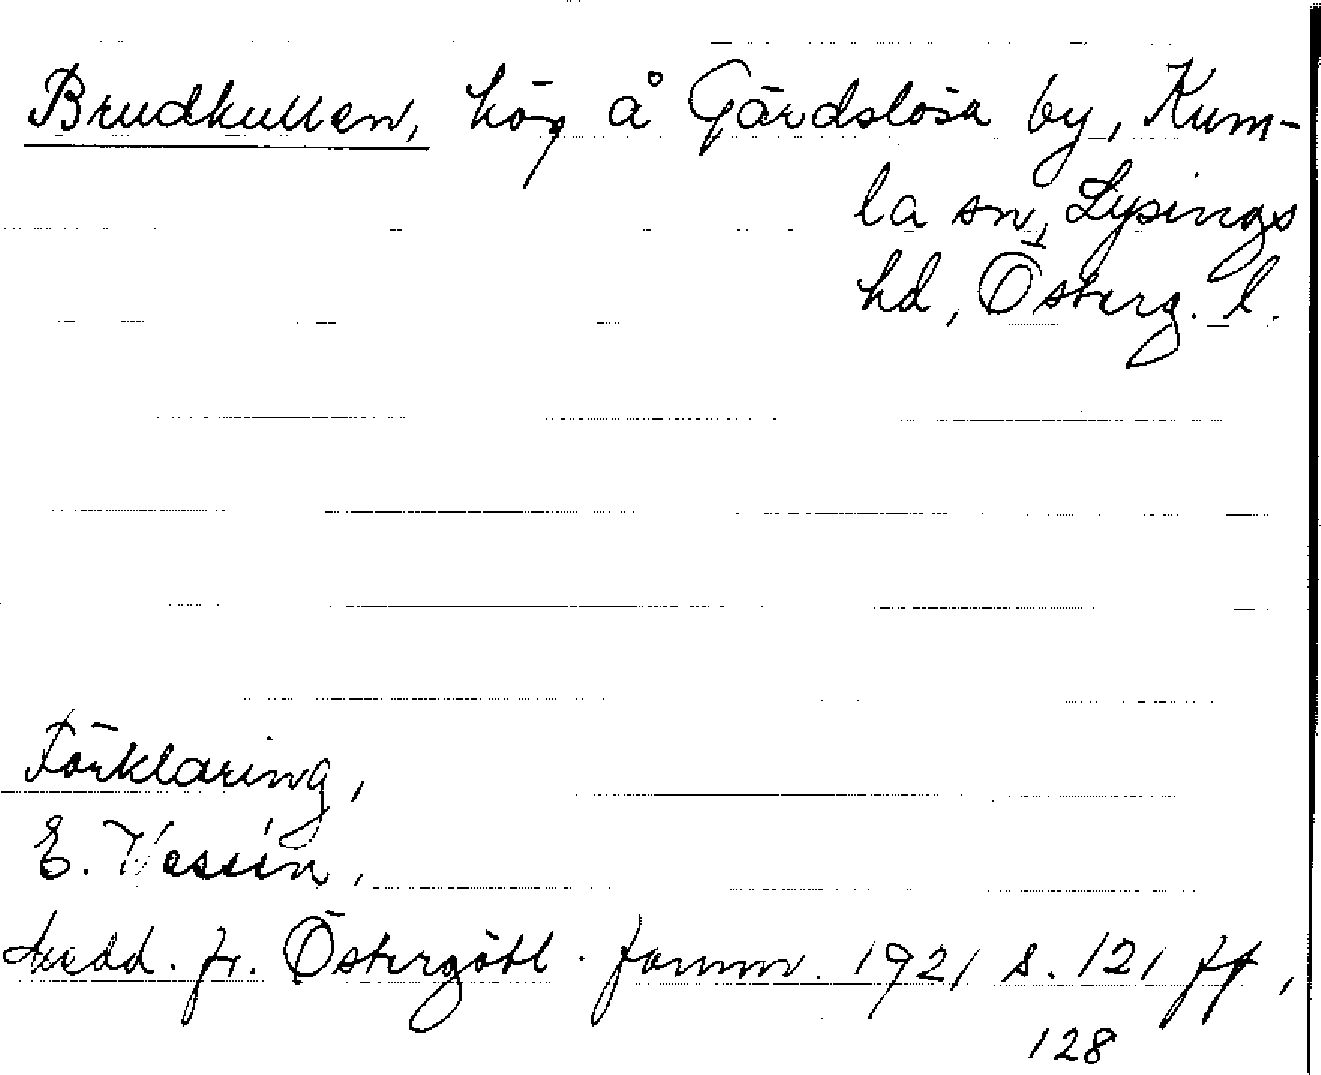 Brudkullen, hög å Gärdslösa by, Kum-
la sn, Lysings
hd, Österg. l.
Förklaring,
E. Wessén,
Medd. fr. Östergötl. fornm. 1921 s. 121 ff,
128